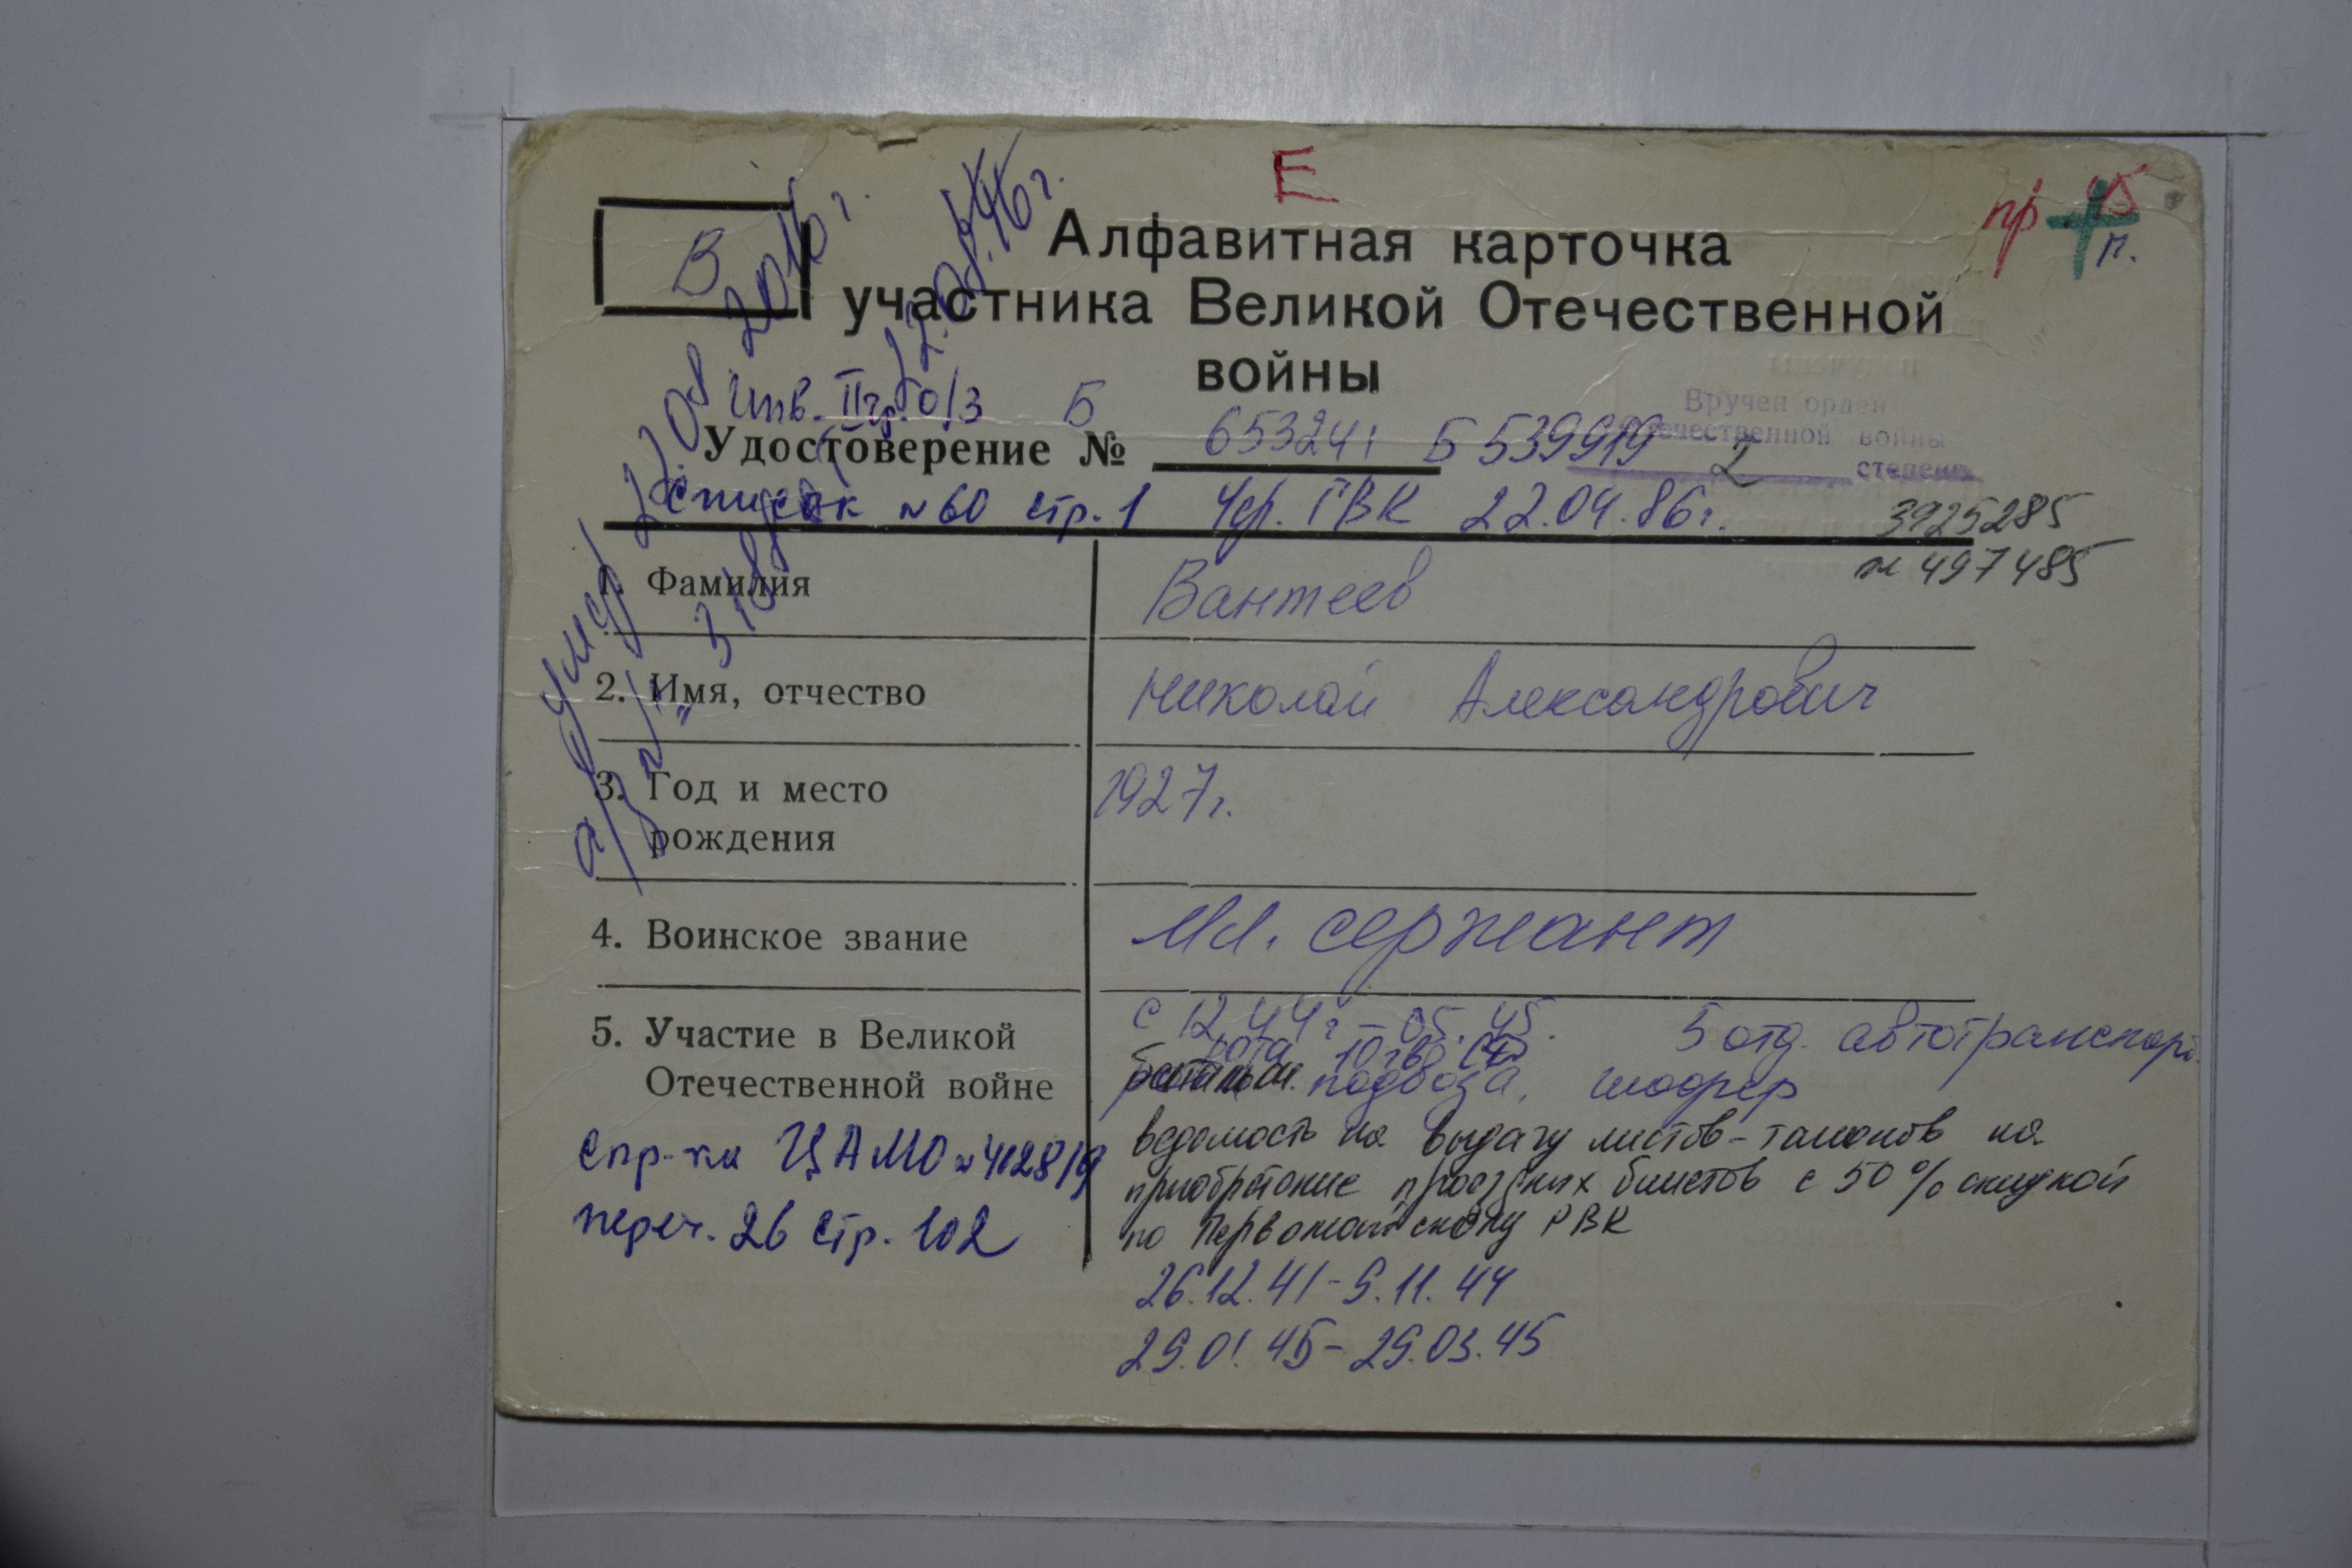 Е
пр 45
п.
В
Алфавитная карточка
участника Великой Отечественной
войны
Инв. II гр. о/з Б
Вручен орден
Отечественной войны
2 степени
Удостоверение № 653241 Б 539919
список №60 стр. 1 Чер. ГВК 22.04.86г.
3925285
№ 497485
умер 22.08 2016г.
а/з
1. Фамилия Вантеев
2. Имя, отчество Николай Александрович
3. Год и место 1927г.
рождения
4. Воинское звание Мл. сержант
5. Участие в Великой с 12.44г – 05.45. 5 отд. автотранспорт.
рота 10 гв. СД
Отечественной войне подвоза, шофер
ведомость на выдачу листов-талонов на
приобретение проездных билетов с 50% скидкой
по Первомайскому РВК
26.12.41-9.11.44
29.01.45-29.03.45
Спр-ка ЦАМО №4128/9
переч. 26 стр. 102